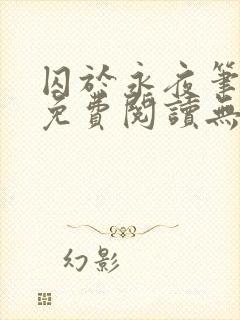 囚於永夜筆
免費閱讀無
幻影